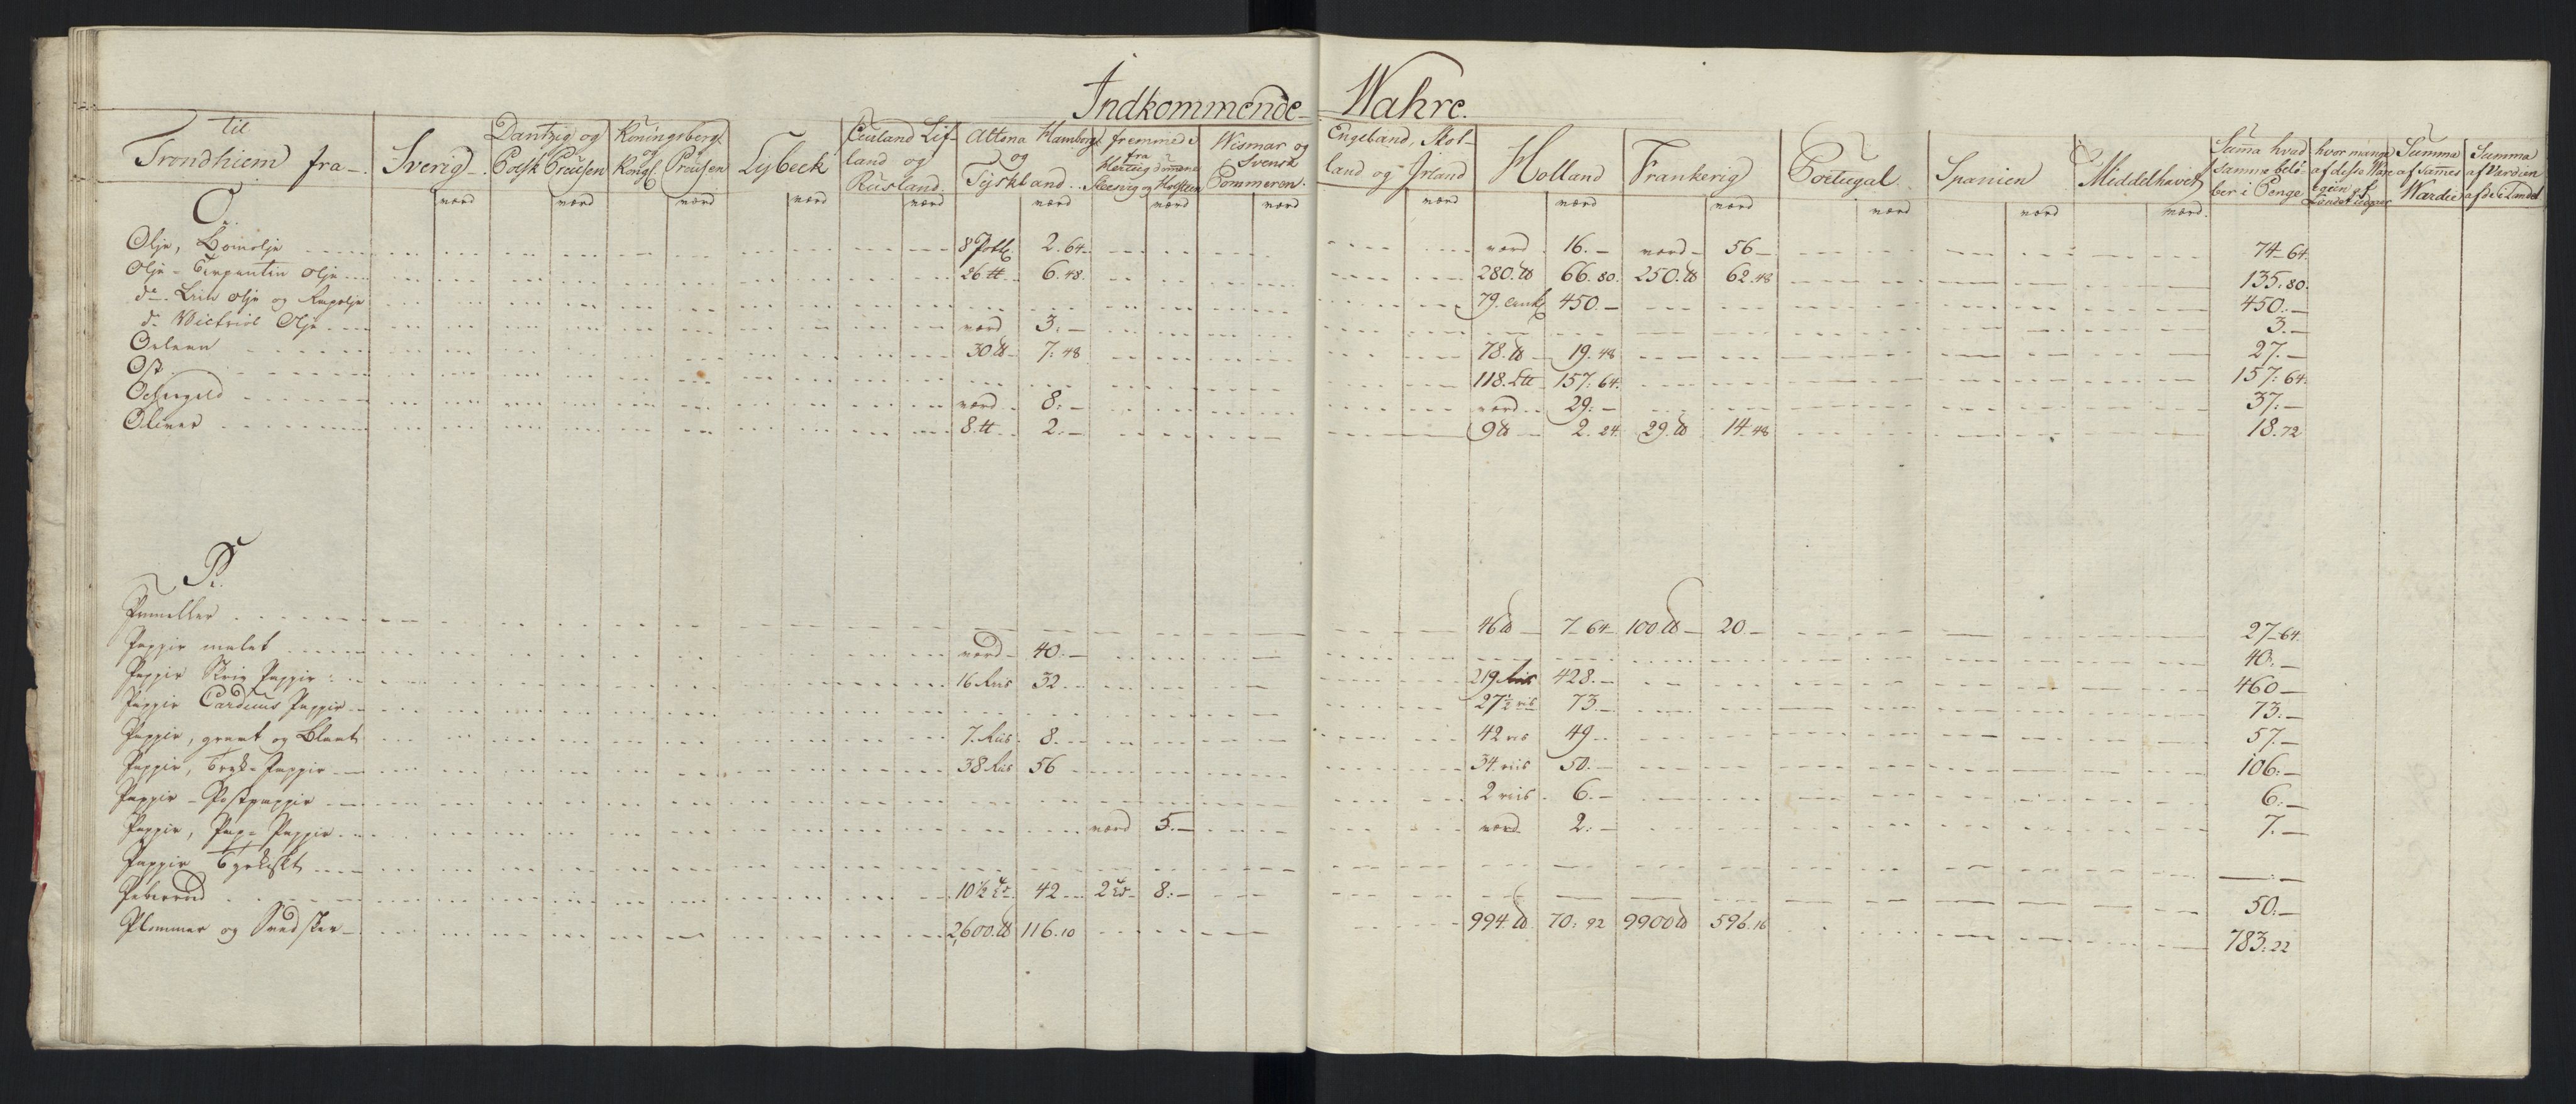 Indkommende Wahre.
Til Trondhiem fra Sverig Dantzig og Polsk Preusen Koningsberg og Kongl. Preusen Lybeck Ceurland Lifland og Rusland Altona Hamborg og Tyskland fremmede fra Hertug dømmene Slesvig og Holsten Wismar og Svensk Pommeren. Engeland, Skotland og Irland Holland Frankerig Portugal Spanien Middelhavet Suma hvad samme beløber i Penge hvor mange af disse Ware egien af Landet udgaar Summa af Sammes Wærdie Summa af Værdien af de i Landet
værd værd værd værd værd værd værd værd værd værd værd værd værd værd
O.
Olje, Bomolje 8 Potl 2.64. værd 16.— værd 56— 74-64.
Olje - Terpentin Olje 26 tt 6.48. 280. tt 66.80. 250. tt 62.48 135.80.
do. Lin olje og Roeolje 79. 450.— 450.—
do. Victriol Olje værd 3.— 3.—
Orlean 30 tt 7.48 78. tt 19.48 27.—
Ost 118. Ltt 157.64. 157.64.
værd 8.— værd 29.— 37.—
Oliver 8. tt 2.— 9 tt 2.24. 29. tt 14.48 18.72
P.
Pruneller 46 tt 7-64 100. tt 20.— 27-64.
Pappir malet værd 40.— 40.—
Pappir Skriv Pappir 16 Riis 32 219 Riis 428.— 460—
Pappir Carduus Pappir 27½ riis 73.— 73.—
Pappir, graat og Blaat 7. Riis 8. 42 ris 49 57.—
Pappir, Tryk-Pappir 38 Riis 56 34 riis 50.— 106.—
Pappir - Postpappir 2 riis 6.— 6.—
Pappir, Pap- Pappir værd 5.— værd 2.— 7.—
Pappir Tyrkiskt —.—
Peberrod 10½ 42 2 8.— 50.—
Plommer og Svedsker 2600. tt 116.10 994. tt 70.92 9900 tt 596.16 783.22